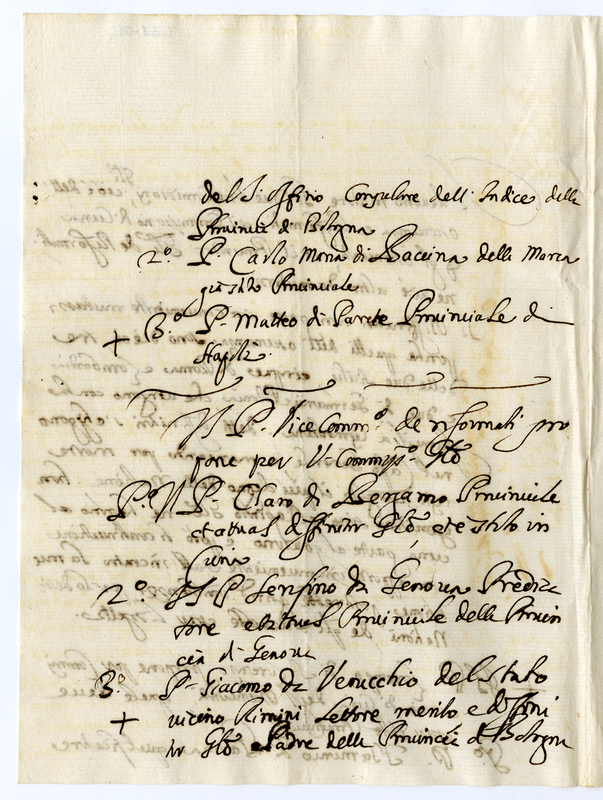 del S. Offitio Consultore dell' Indice della
Provincia di Bologna
2.° P. Carlo Maria di Baccina della Marca
già stato Provinciale
+ 3.° P. Matteo di Parete Provinciale di
Napoli.
Il P. Vice Comm.° de riformati pro
pone per V. Commiss.° Glē
P.° Il P. Claro di Bergamo Provinciale
et attual diffinitor Glē, et è stato in
Curia
2.° Il P. Serafino da Genova Predica
tore et attual Provinciale della Provin
cia di Genova
3.° P. Giacomo da Verucchio del stato
+ vicino Rimini Lettore
tor Glē e Padre della Provincia di Bologna